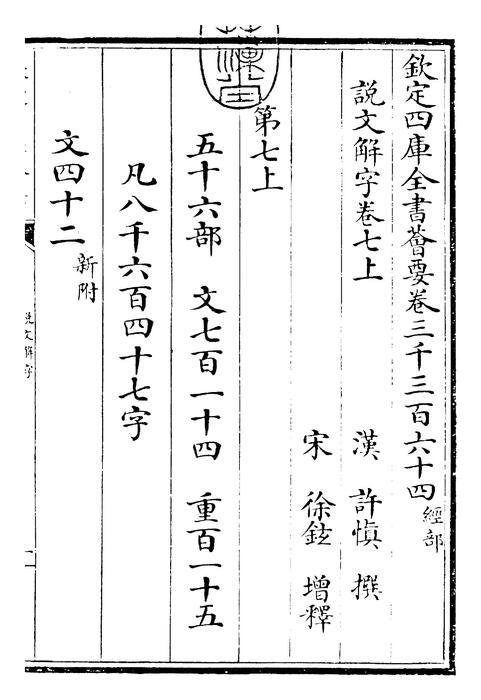 欽定四庫全書薈要卷三千三百六十四 經部
説文解字卷七上
漢 許慎 撰
宋 徐鉉 增釋
第七上
五十六部 文七百一十四 重百一十五
凡八千六百四十七字
文四十二 新附
説文解字